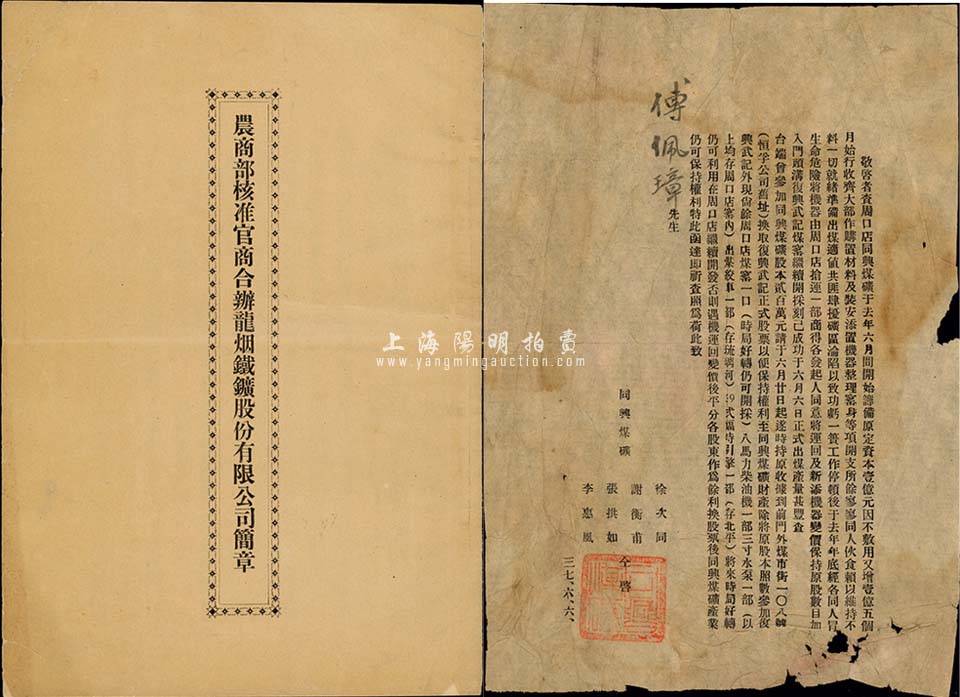 農商部核准官商合辦龍烟鐵鑛股份有限公司簡章
傅佩璋先生
敬啓者查周口店同興煤礦于去年六月間開始籌備原定資本壹億元因不敷用又增壹億五個
月始行收齊大部作購置材料及裝安添置機器整理窰身等項開支所餘寥寥同人伙食賴以維持不
料一切就緒準備出煤適値共匪肆擾礦區淪陷以致功虧一簣工作停頓後于去年年底經各同人冒
生命危險將機器由周口店搶運一部商得各發起人同意將運回及新添機器變價保持原股數目加
入門頭溝復興武記煤窰繼續開採刻已成功于六月六日正式出煤產量甚豐查
台端曾參加同興煤礦股本貳百萬元請于六月廿日起逐時持原收據到前門外煤市街一〇八號
(恒孚公司舊址)換取復興武記正式股票以便保持權利至同興煤礦財產除將原股本照數參加復
興武記外現尙餘周口店煤窰一口(時局好轉仍可開採)八馬力柴油機一部三寸水泵一部(以
上均存周口店窰內)出煤絞車一部(存琉璃河)
引擎一部(存北平)將來時局好轉
仍可利用在周口店繼續開發否則遇機運回變價後平分各股東作爲餘利換股票後同興煤礦產業
仍可保持權利特此函達即祈查照爲荷此致
同興煤礦
徐次同
謝衡甫
張拱如
李惠風
仝啓
三七、六、六、
上海陽明拍賣
www.yangmingauction.com